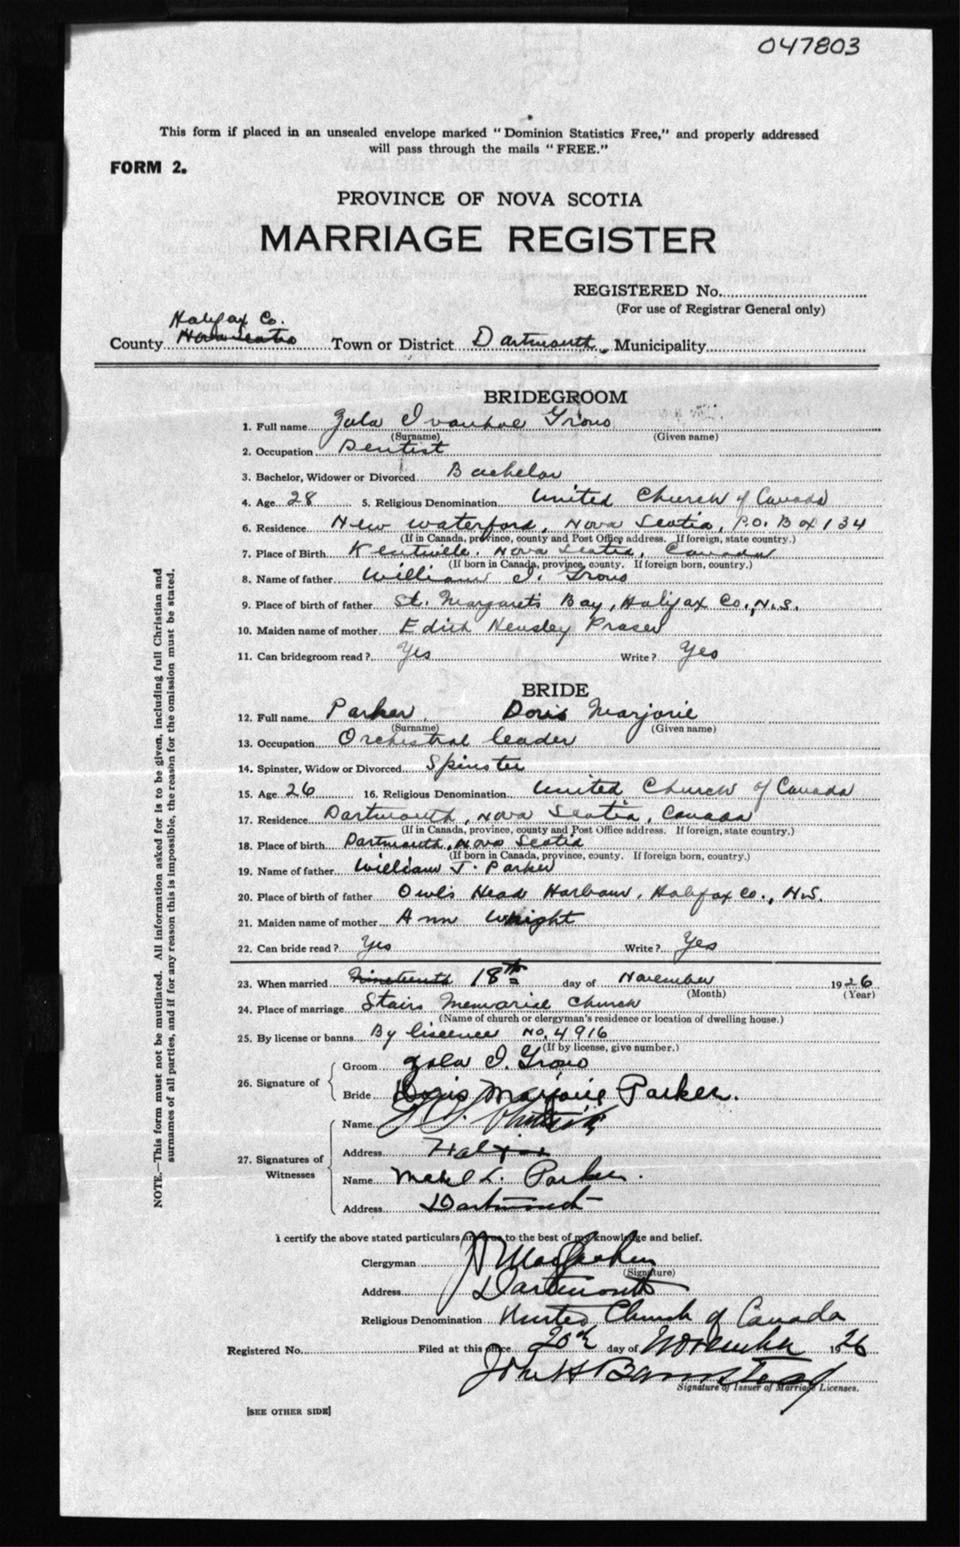 047803
This form if placed in an unsealed envelope marked "Dominion Statistics Free," and properly addressed
will pass through the mails "FREE."
FORM 2.
PROVINCE OF NOVA SCOTIA
MARRIAGE REGISTER
REGISTERED No.
(For use of Registrar General only)
Halifax Co.
County Nova Scotia Town or District Dartmouth Municipality
BRIDEGROOM
1. Full name Zala Ivanhoe Grono
(Surname) (Given name)
2. Occupation Dentist
3. Bachelor, Widower or Divorced Bachelor
4. Age 28 5. Religious Denomination United Church of Canada
6. Residence New Waterford, Nova Scotia, P.O. Box 134
(If in Canada, province, county and Post Office address. If foreign, state country.)
7. Place of Birth Kentville, Nova Scotia, Canada
(If born in Canada, province, county. If foreign born, country.)
8. Name of father William I. Grono
9. Place of birth of father St. Margaret's Bay, Halifax Co., N.S.
10. Maiden name of mother Edith Hensley Fraser
11. Can bridegroom read? Yes Write? Yes
BRIDE
12. Full name Parker, Doris Marjorie
(Surname) (Given name)
13. Occupation Orchestral leader
14. Spinster, Widow or Divorced Spinster
15. Age 26 16. Religious Denomination United Church of Canada
17. Residence Dartmouth, Nova Scotia, Canada
(If in Canada, province, county and Post Office address. If foreign, state country.)
18. Place of birth Dartmouth, Nova Scotia
(If born in Canada, province, county. If foreign born, country.)
19. Name of father William J. Parker
20. Place of birth of father Owl's Head Harbour, Halifax Co., N.S.
21. Maiden name of mother Ann Wright
22. Can bride read? Yes Write? Yes
23. When married Nineteenth 18th day of November 1926
(Month) (Year)
24. Place of marriage Stairs Memorial Church
(Name of church or clergyman's residence or location of dwelling house.)
25. By license or banns By liscence No. 4916
(If by license, give number.)
26. Signature of
Groom Zala I. Grono
Bride Doris Marjorie Parker.
27. Signatures of Witnesses
Name
Address Halifax
Name Mabel L. Parker.
Address Dartmouth
I certify the above stated particulars are true to the best of my knowledge and belief.
Clergyman
(Signature)
Address Dartmouth
Religious Denomination United Church of Canada
Registered No. Filed at this office 20th day of November 1926
John H Bannstead
Signature of Issuer of Marriage Licenses.
[SEE OTHER SIDE]
NOTE.—This form must not be mutilated. All information asked for is to be given, including full Christian and
surnames of all parties, and if for any reason this is impossible, the reason for the omission must be stated.